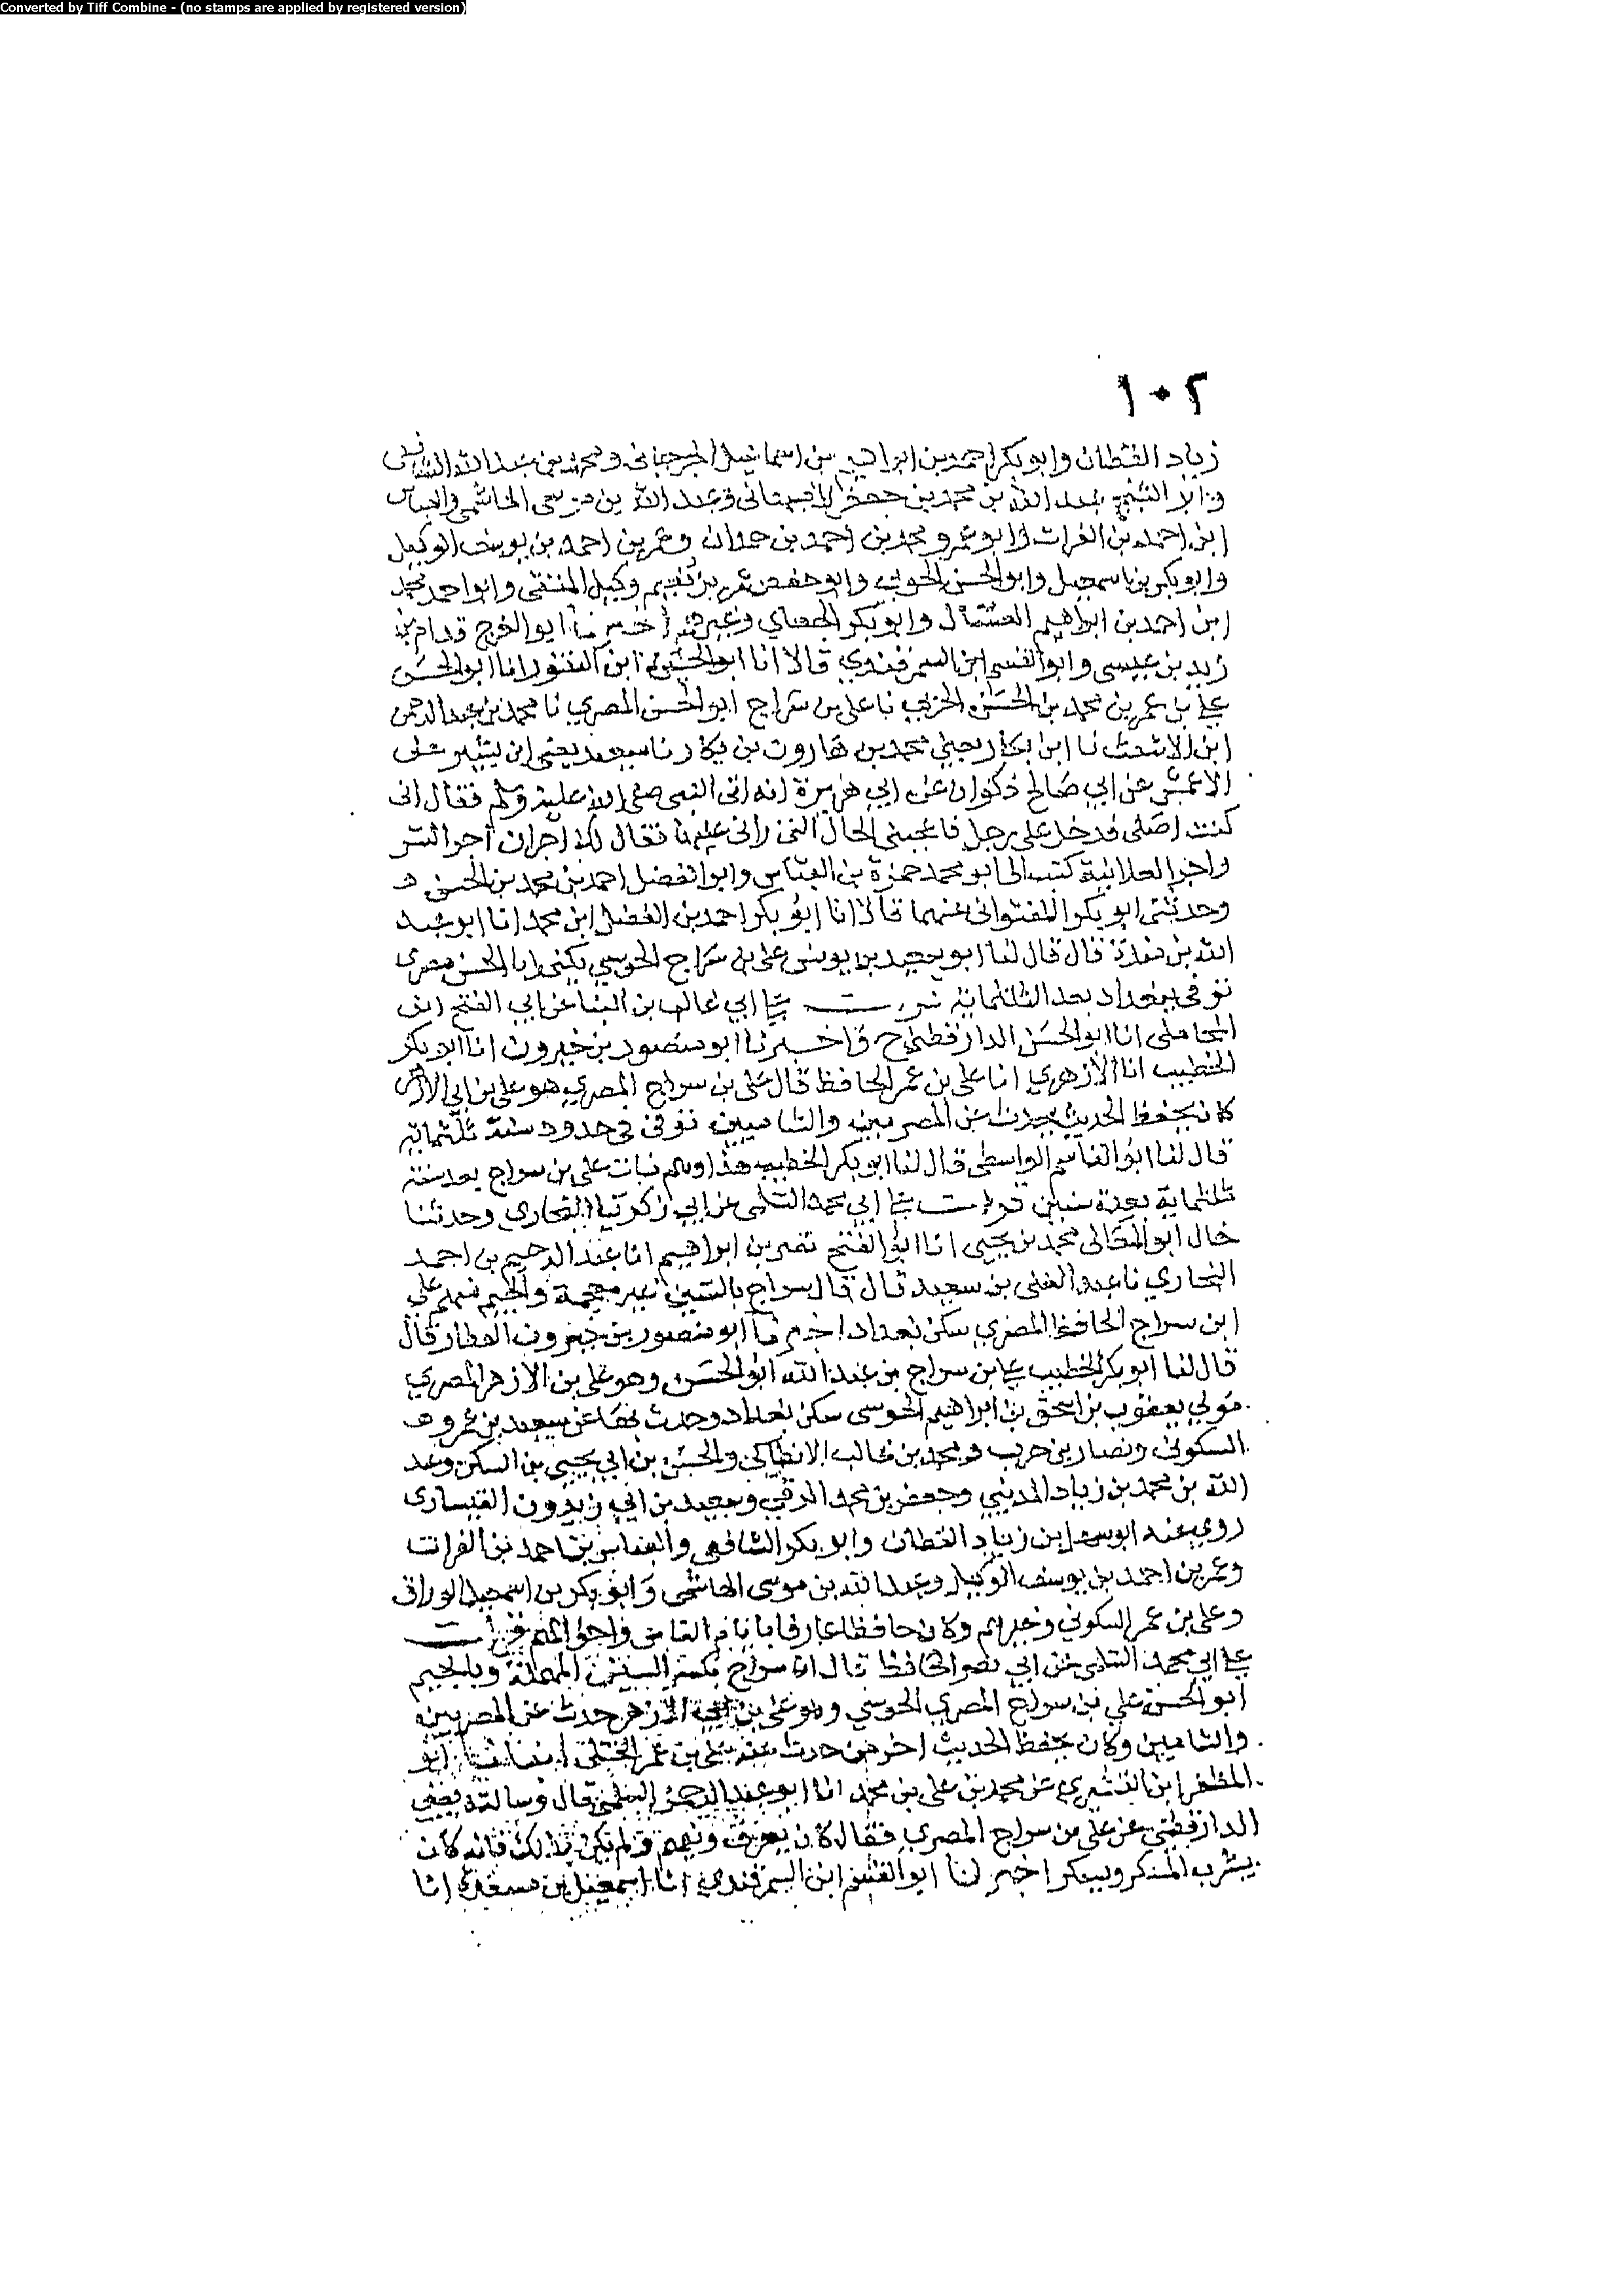 Converted by Tiff Combine - (no stamps are applied by registered version)
١٠٢
زياد القطان وابو بكر احمد بن ابراهيم بن اسماعيل الجرجاني ومحمد بن عبد الله الشافعي
وابو الشيخ عبد الله بن محمد بن جعفر الاصبهاني وعبد الله بن موسى الهاشمي والعباس
ابن احمد بن الفرات وابو عمرو محمد بن احمد بن حمدان وعمر بن احمد بن يوسف الوكيل
وابو بكر بن اسمعيل وابو الحسن الحربي وابو حفص عمر بن نعيم وكيل المتقى وابو احمد محمد
ابن احمد بن ابراهيم العسال وابو بكر الجعابي وغيرهم اخبرنا ابو الفرج قوام بن
زيد بن عيسى وابو القسم ابن السمرقندي قالا انا ابو الحسين ابن النقور انا ابو الحسن
علي بن عمر بن محمد بن الحسن الحربي نا علي بن سراج ابو الحسن المصري نا محمد بن عبد الرحمن
ابن الاشعث نا ابن بكار يعني محمد بن هارون بن بكار نا سعيد يعني ابن بشير على
الاعمش عن ابي صالح ذكوان عن ابي هريرة انه اتى النبي صلى الله عليه وسلم فقال انى
كنت اصلى فدخل على رجل فاعجبني الحال التى رانى عليها فقال لك اجران اجر السر
واجر العلانية كتب الى ابو محمد حمزة بن العباس وابو الفضل احمد بن محمد بن الحسن
وحدثني ابو بكر اللفتواني عنهما قالا انا ابو بكر احمد بن الفضل ابن محمد انا ابو عبد
الله بن مندة قال قال لنا ابو سعيد بن يونس على بن سراج الحرسي يكنى ابا الحسن مصري
توفى ببغداد بعد الثلثماية قرات على ابي غالب بن البنا عن ابي الفتح ابن
المحاملى انا ابو الحسن الدارقطني ح واخبرنا ابو منصور بن خيرون انا ابو بكر
الخطيب انا الازهري انا على بن عمر الحافظ قال على بن سراج المصري هو علي بن ابي الازهر
كان يحفظ الحديث يحدث عن المصريين والشاميين توفى فى حدود سنة ثلثماية
قال لنا ابو القاسم الواسطى قال لنا ابو بكر الخطيب هذا وهم فمات على بن سراج بعد سنة
ثلثماية بعدة سنين قرات على ابي محمد السلمى عن ابي زكريا البخاري وحدثنا
خال ابو المعالى محمد بن يحيى انا ابو الفتح نصر بن ابراهيم انا عبد الرحيم بن احمد
البخاري نا عبد الغنى بن سعيد قال قال سراج بالسين غير معجمة والجيم فهم علي
ابن سراج الحافظ المصري سكن بغداد اخبرنا ابو منصور بن خيرون العطار قال
قال لنا ابو بكر الخطيب علي بن سراج بن عبد الله ابو الحسن وهو علي بن الازهر المصري
مولى يعقوب بن اسحق بن ابراهيم الحرسى سكن بغداد وحدث بها عن سعيد بن عمرو
السكوني ونصار بن حرب ومحمد بن غالب الانطاكى والحسن بن ابي يحيى بن السكن وعبد
الله بن محمد بن زياد المديني وجعفر بن محمد الرقي وسعيد بن ابي زيدون القيسارى
روى عنه ابو سهل بن زياد القطان وابو بكر الشافعي والعباس بن احمد بن الفرات
وعمر بن احمد بن يوسف الوكيل وعبد الله بن موسى الهاشمى وابو بكر بن اسمعيل الوراق
وعلى بن عمر السكوني وغيرهم وكان حافظا عارفا بايام الناس واحوالهم قرات
على ابي محمد السلمى عن ابي نصر الحافظ قال اما سراج بكسر السين المهملة وبالجيم
ابو الحسن علي بن سراج المصري الحرسي وهو علي بن ابي الازهر حدث عن المصريين
والشاميين وكان يحفظ الحديث اخر من حدث عنه على بن عمر الختلى انبانا ابو
المظفر ابن القشيري عن محمد بن على بن محمد انا ابو عبد الرحمن السلمي قال وسالته يعني
الدارقطني عن علي بن سراج المصري فقال كان يعرف ويفهم ولم يكن بذلك فانه كان
يشرب المسكر ويسكر اخبرنا ابو القسم ابن السمرقندي انا اسمعيل بن مسعدة انا